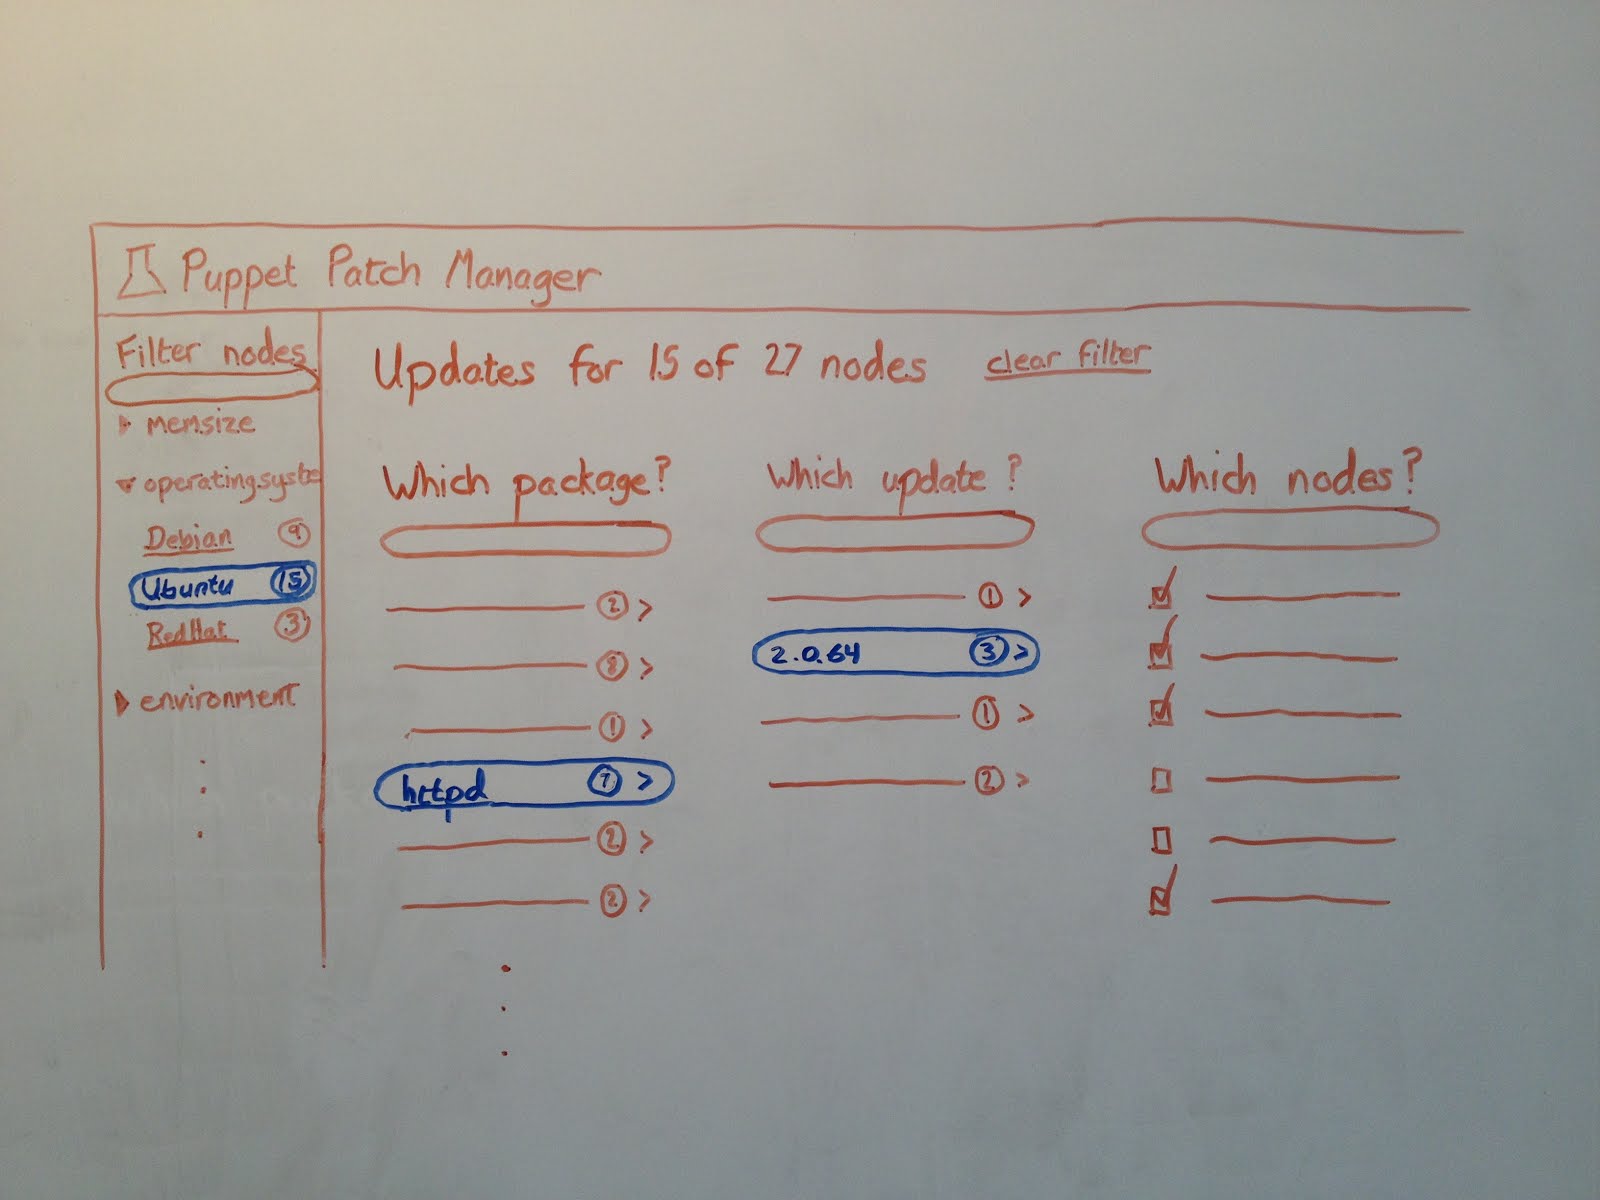 Puppet Patch Manager
Filter nodes
memsize
operatingsyste
Debian 9
Ubuntu 15
RedHat 3
environment
Updates for 15 of 27 nodes clear filter
Which package?
2 >
>
1 >
httpd 7 >
2 >
2 >
Which update?
1 >
2.0.64 3 >
1 >
2 >
Which nodes?